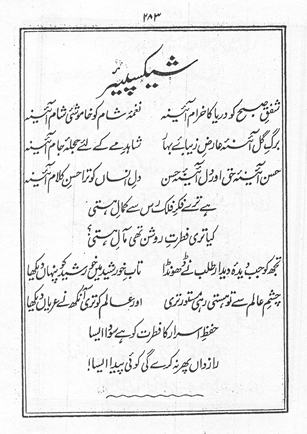 ۲۸۳
شیکسپیئر
شفقِ صبح کو دریا کا خرام آئینہ نغمۂ شام کو خاموشئ شام آئینہ
برگِ گل آئنۂ عارضِ زیبائے بہار شاہدِ مے کے لئے حجلۂ جام آئینہ
حسن آئینۂ حق اور دل آئینۂ حسن دلِ انساں کو ترا حسنِ کلام آئینہ
ہے ترے فکرِ فلک رس سے کمالِ ہستی
کیا تری فطرتِ روشن تھی مآلِ ہستی؟
تجھ کو جب دیدۂ دیدار طلب نے ڈھونڈا تابِ خورشید میں خورشید کو پنہاں دیکھا
چشمِ عالم سے تو ہستی رہی مستور تری اور عالم کو تری آنکھ نے عریاں دیکھا
حفظِ اسرار کا فطرت کو ہے سودا ایسا
رازداں پھر نہ کرے گی کوئی پیدا ایسا!